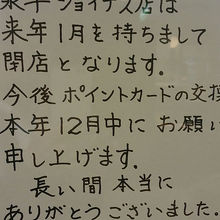 ジョイナス店は
来年1月を持ちまして
閉店となります。
今後ポイントカードの交換
本年12月中にお願い
申し上げます。
長い間本当に
ありがとうございました。